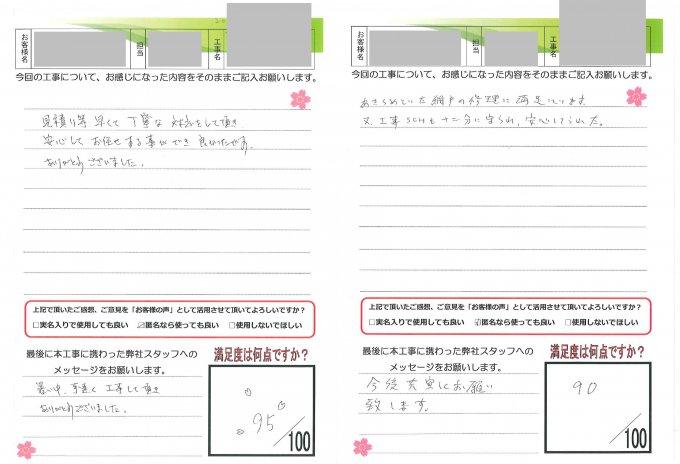 お客様名
担当
工事名
今回の工事について、お感じになった内容をそのままご記入お願いします。
見積り等 早くて 丁寧な 対応をして頂き
安心して お任せする事ができ 良かったです。
ありがとうございました。
上記で頂いたご感想、ご意見を「お客様の声」として活用させて頂いてよろしいですか？
□実名入りで使用しても良い ☑匿名なら使っても良い □使用しないでほしい
最後に本工事に携わった弊社スタッフへの
メッセージをお願いします。
暑い中、手際く 工事して頂き
ありがとうございました。
満足度は何点ですか？
95
/100
お客様名
担当
工事名
今回の工事について、お感じになった内容をそのままご記入お願いします。
あきらめていた網戸の修理に満足しています。
又、工事SCHも十二分に守られ、安心してられた。
上記で頂いたご感想、ご意見を「お客様の声」として活用させて頂いてよろしいですか？
□実名入りで使用しても良い ☑匿名なら使っても良い □使用しないでほしい
最後に本工事に携わった弊社スタッフへの
メッセージをお願いします。
今後共更にお願い
致します。
満足度は何点ですか？
90
/100